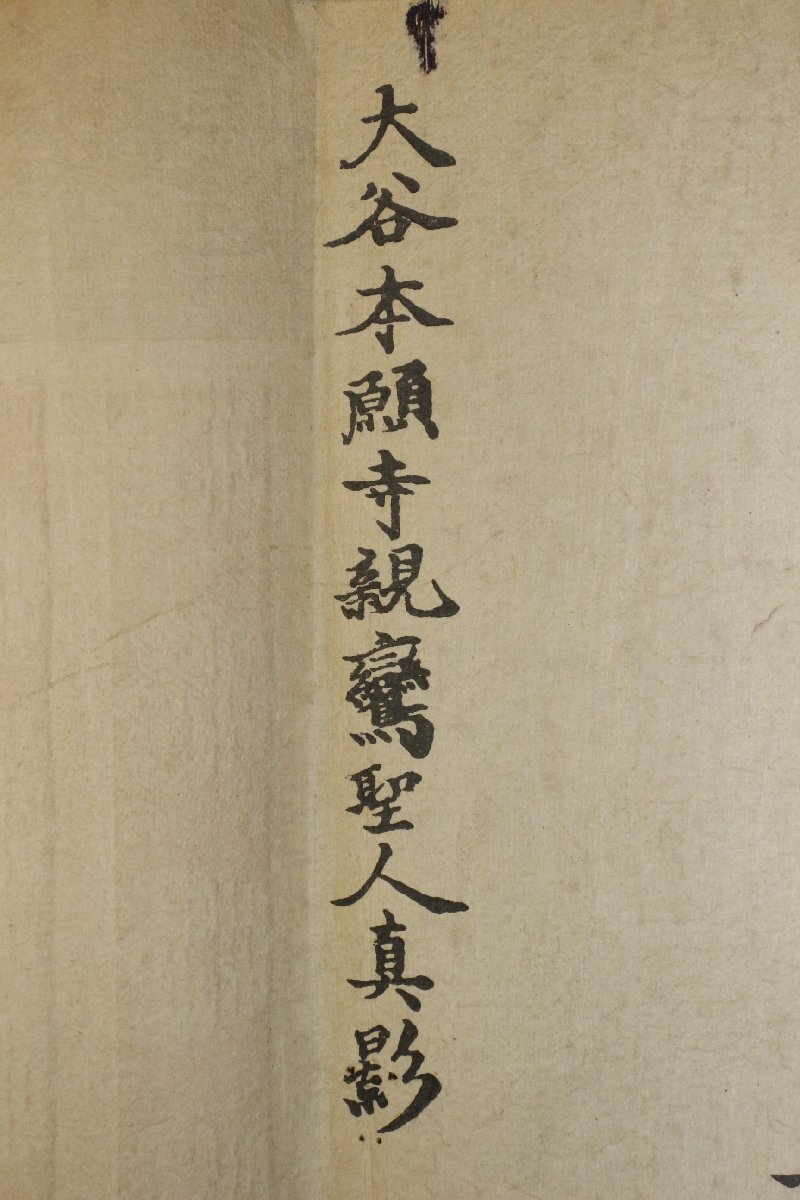 大谷本願寺親鸞聖人真影